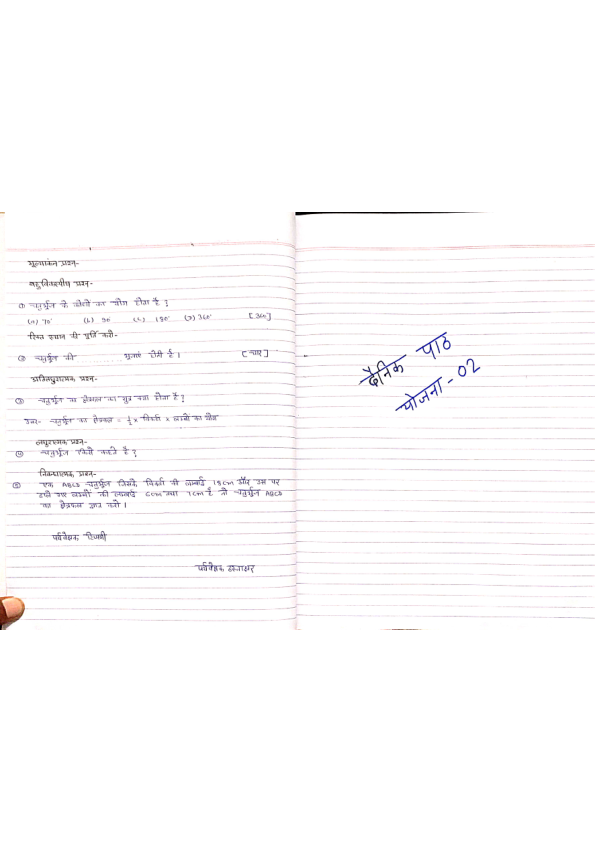 मूल्यांकन प्रश्न-
बहुविकल्पीय प्रश्न-
① चतुर्भुज के कोणों का योग होता है ?
(a) 70° (b) 90 (c) 180° (D) 360° [360]
रिक्त स्थान की पूर्ति करो-
② चतुर्भुज की ............ भुजाएं होती है । [चार]
③ चतुर्भुज का क्षेत्रफल का सूत्र क्या होता है ?
उत्तर- चतुर्भुज का क्षेत्रफल = ½ x विकर्ण x लम्बों का योग
लघुरात्मक प्रश्न-
④ चतुर्भुज किसे कहते है ?
निबन्धात्मक प्रश्न-
⑤ एक ABCD चतुर्भुज जिसके विकर्ण की लम्बाई 18cm और उस पर
डाले गए लम्बों की लम्बाई 6cm तथा 7cm है तो चतुर्भुज ABCD
का क्षेत्रफल ज्ञात करो ।
पर्यवेक्षक टिप्पणी
पर्यवेक्षक हस्ताक्षर
दैनिक पाठ
योजना - 02